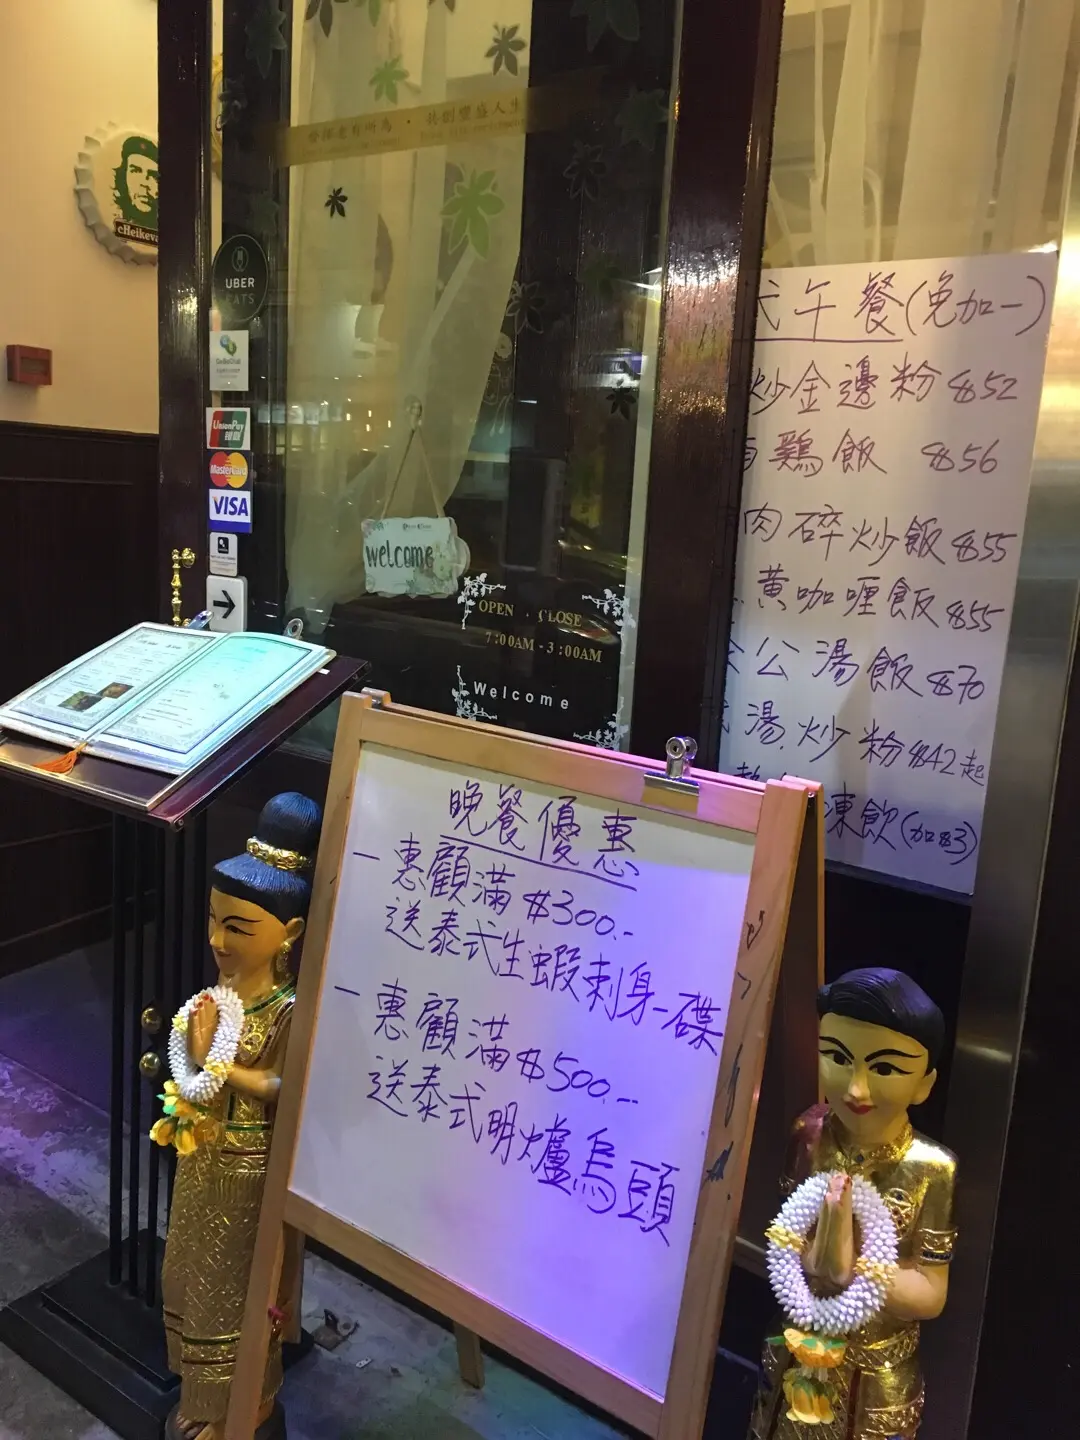 發揮老有所為 · 共創豐盛人生
cHeikeva
UBER
EATS
UnionPay
MasterCard
VISA
welcome
OPEN . CLOSE
7:00AM - 3:00AM
Welcome
式午餐(免加一)
炒金邊粉 $52
雞飯 $56
肉碎炒飯 $55
黄咖喱飯 $55
公湯飯 $70
湯.炒粉 $42起
凍飲(加$3)
晚餐優惠
一惠顧滿$300.-
送泰式生蝦刺身一碟
一惠顧滿$500.-
送泰式明爐烏頭